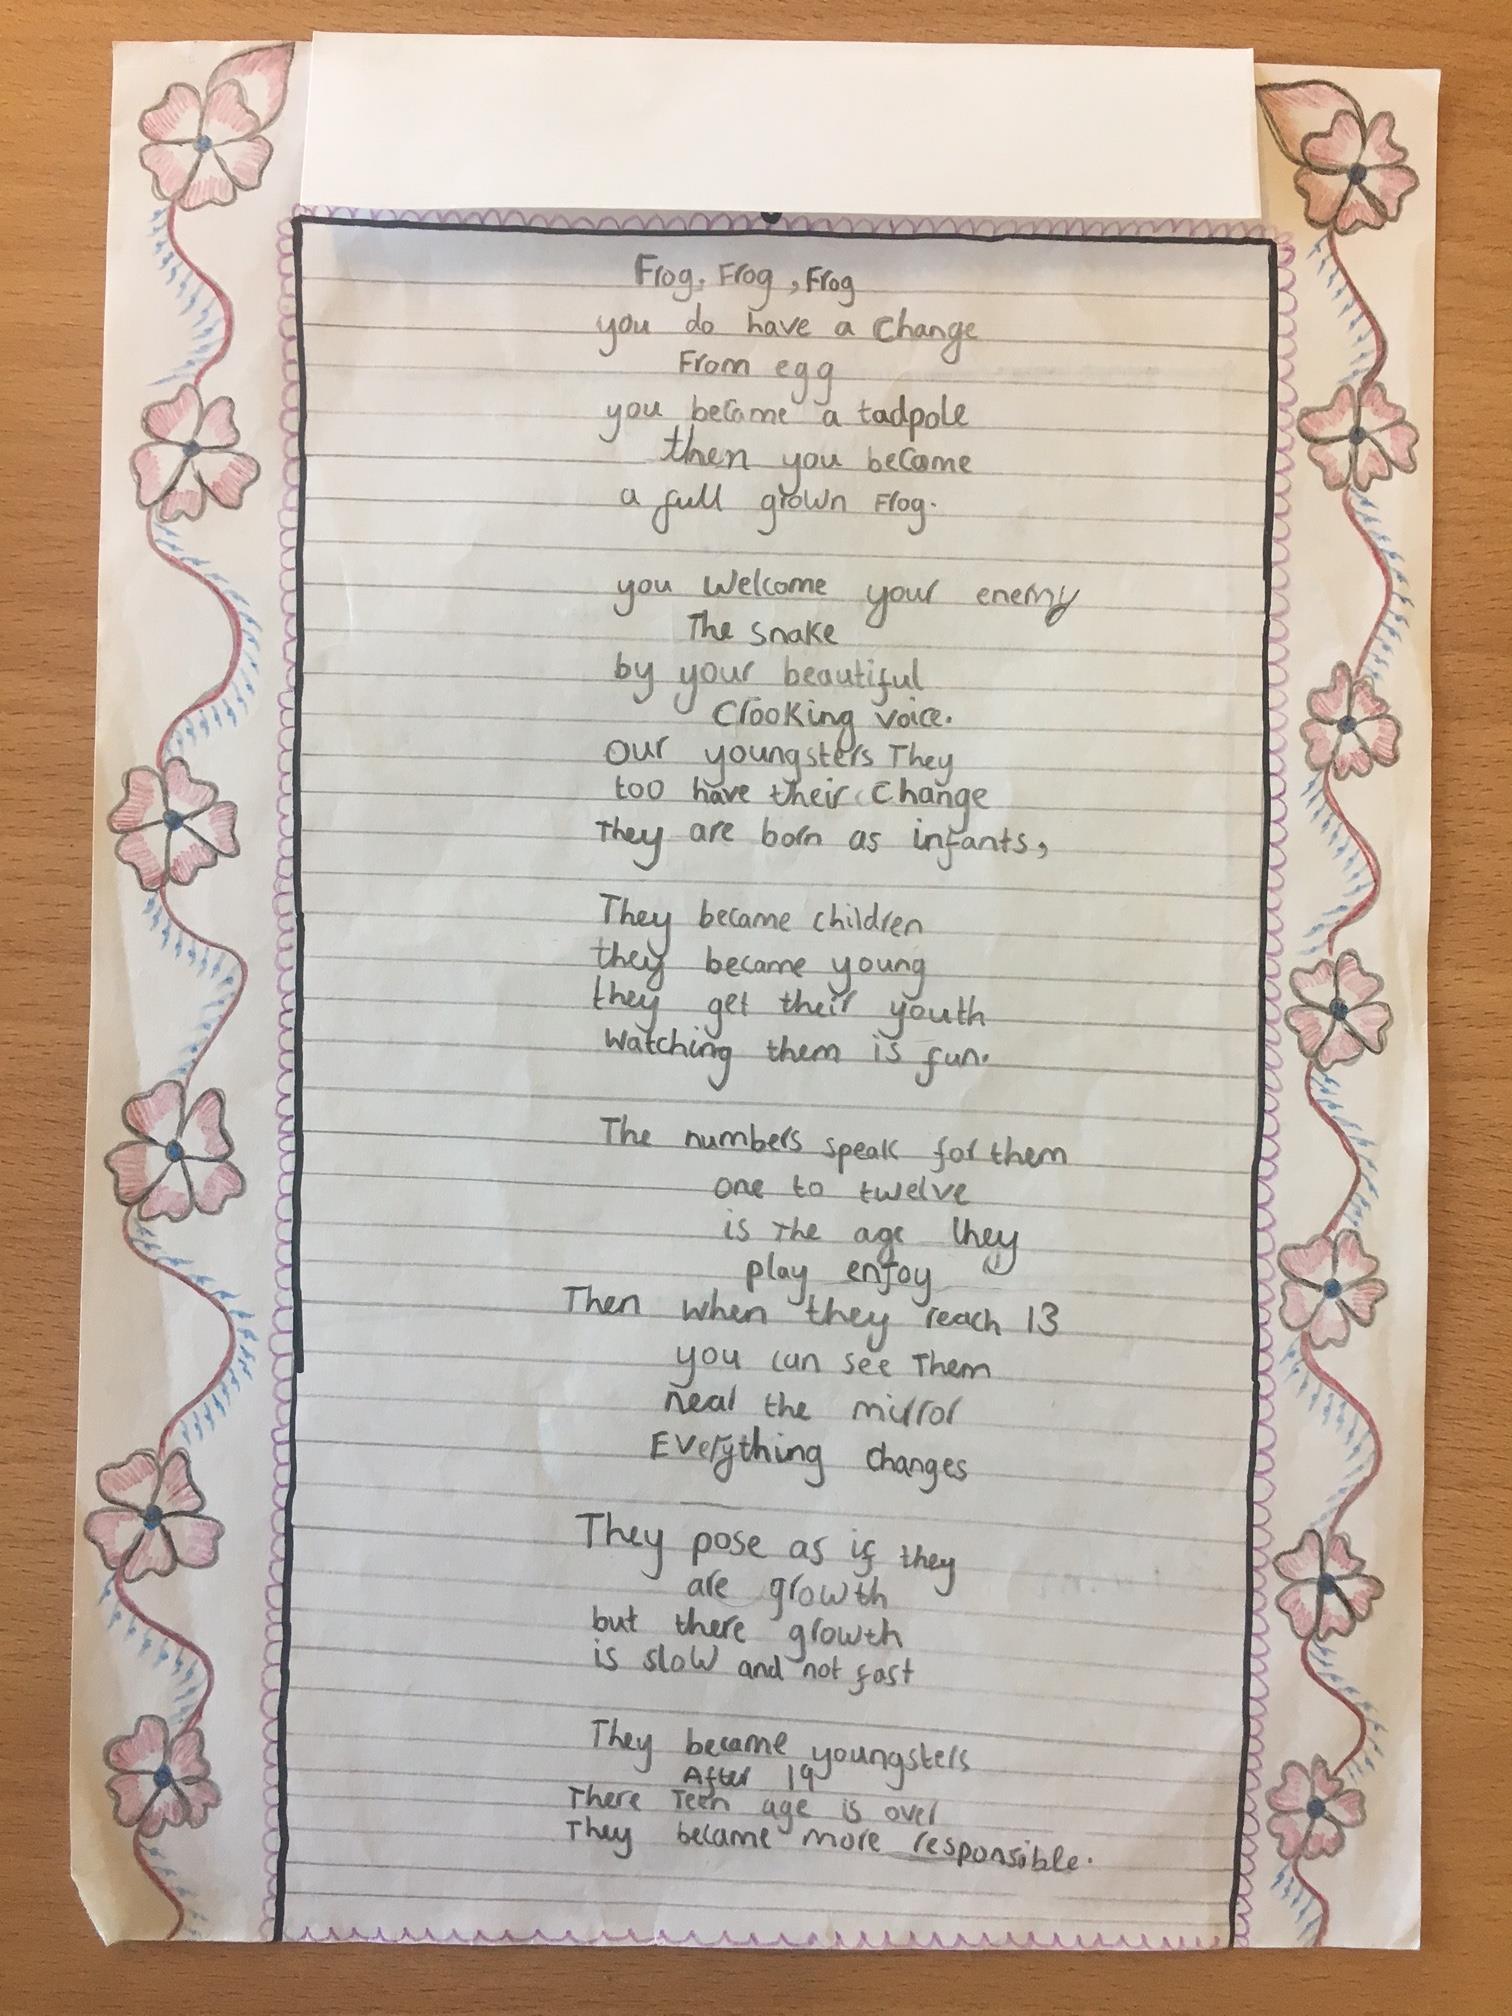 Frog, Frog, Frog
you do have a change
From egg
you became a tadpole
then you became
a full grown Frog.
you Welcome your enemy
The snake
by your beautiful
Crooking voice.
Our youngsters They
too have their change
They are born as infants,
They became children
they became young
they get their youth
Watching them is fun.
The numbers speak for them
one to twelve
is The age they
play enjoy
Then when they reach 13
you can see Them
near the mirror
Everything changes
They pose as if they
are growth
but there growth
is slow and not fast
They became youngsters
After 19
There Teen age is over
They became more responsible.